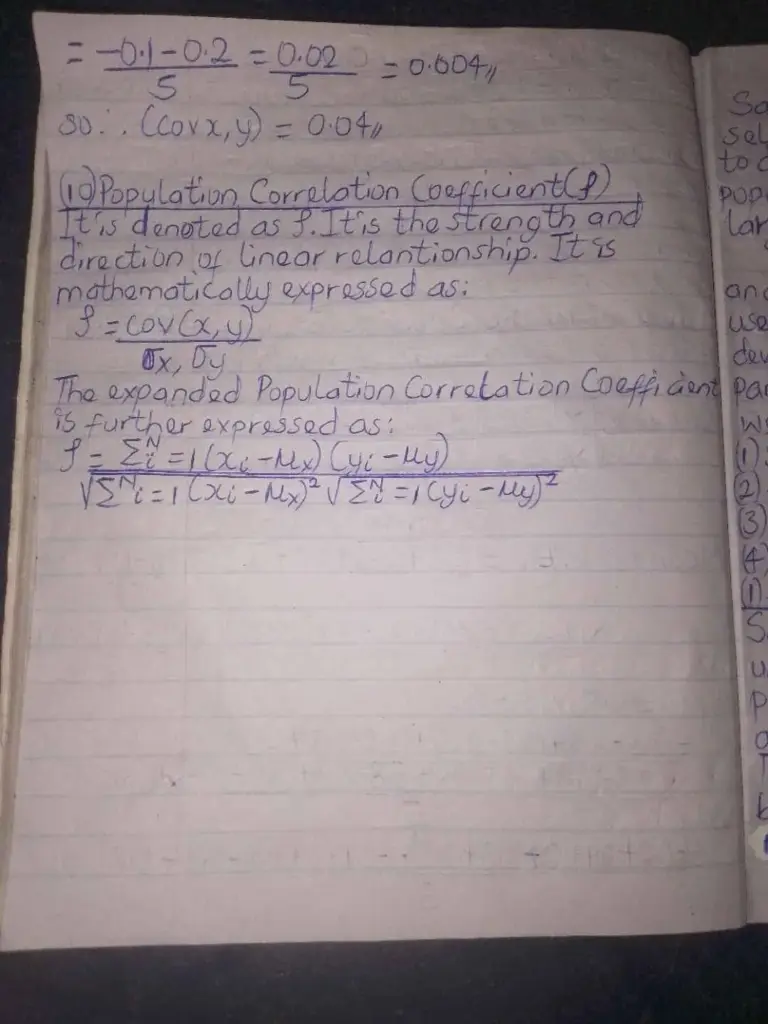 = -0.1-0.2/5 = 0.02/5 = 0.004//
so ∴ (cov x,y) = 0.04//
(10) Population Correlation Coefficient (ρ)
It is denoted as ρ. It is the strength and
direction of linear relantionship. It is
mathematically expressed as:
ρ = cov(x,y)
σx, σy
The expanded Population Correlation Coefficient
is further expressed as:
ρ = Σᴺi=1(xi-μx)(yi-μy)
√Σᴺi=1(xi-μx)² √Σᴺi=1(yi-μy)²
to
pop
lar
and
use
dev
par
(1)
(2)
(3)
(4)
(1)